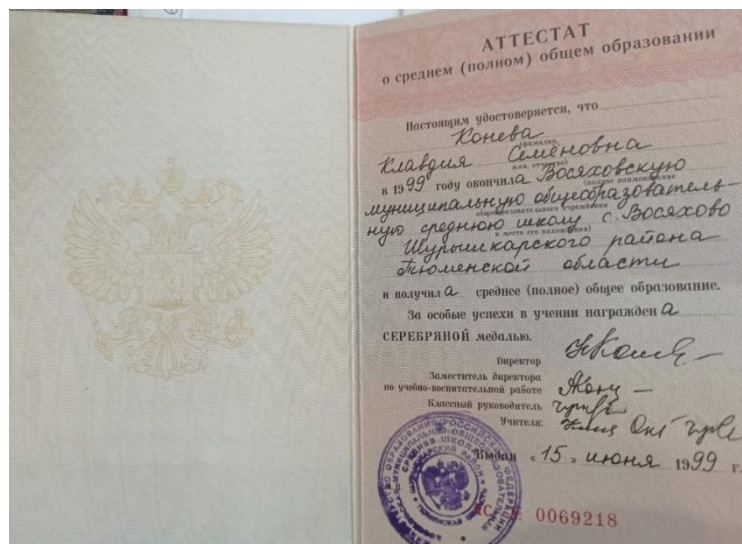 АТТЕСТАТ
о среднем (полном) общем образовании
Настоящим удостоверяется, что
Конева
(фамилия,
Клавдия Семёновна
имя, отчество)
в 1999 году окончила Восяховскую
(полное наименование
муниципальную общеобразователь-
общеобразовательного учреждения
ную среднюю школу с. Восяхово
и место его нахождения)
Шурышкарского района
Тюменской области
и получила среднее (полное) общее образование.
За особые успехи в учении награждена
СЕРЕБРЯНОЙ медалью.
Директор
Заместитель директора
по учебно-воспитательной работе
Классный руководитель
Учителя:
Выдан «15» июня 1999 г.
№ 0069218